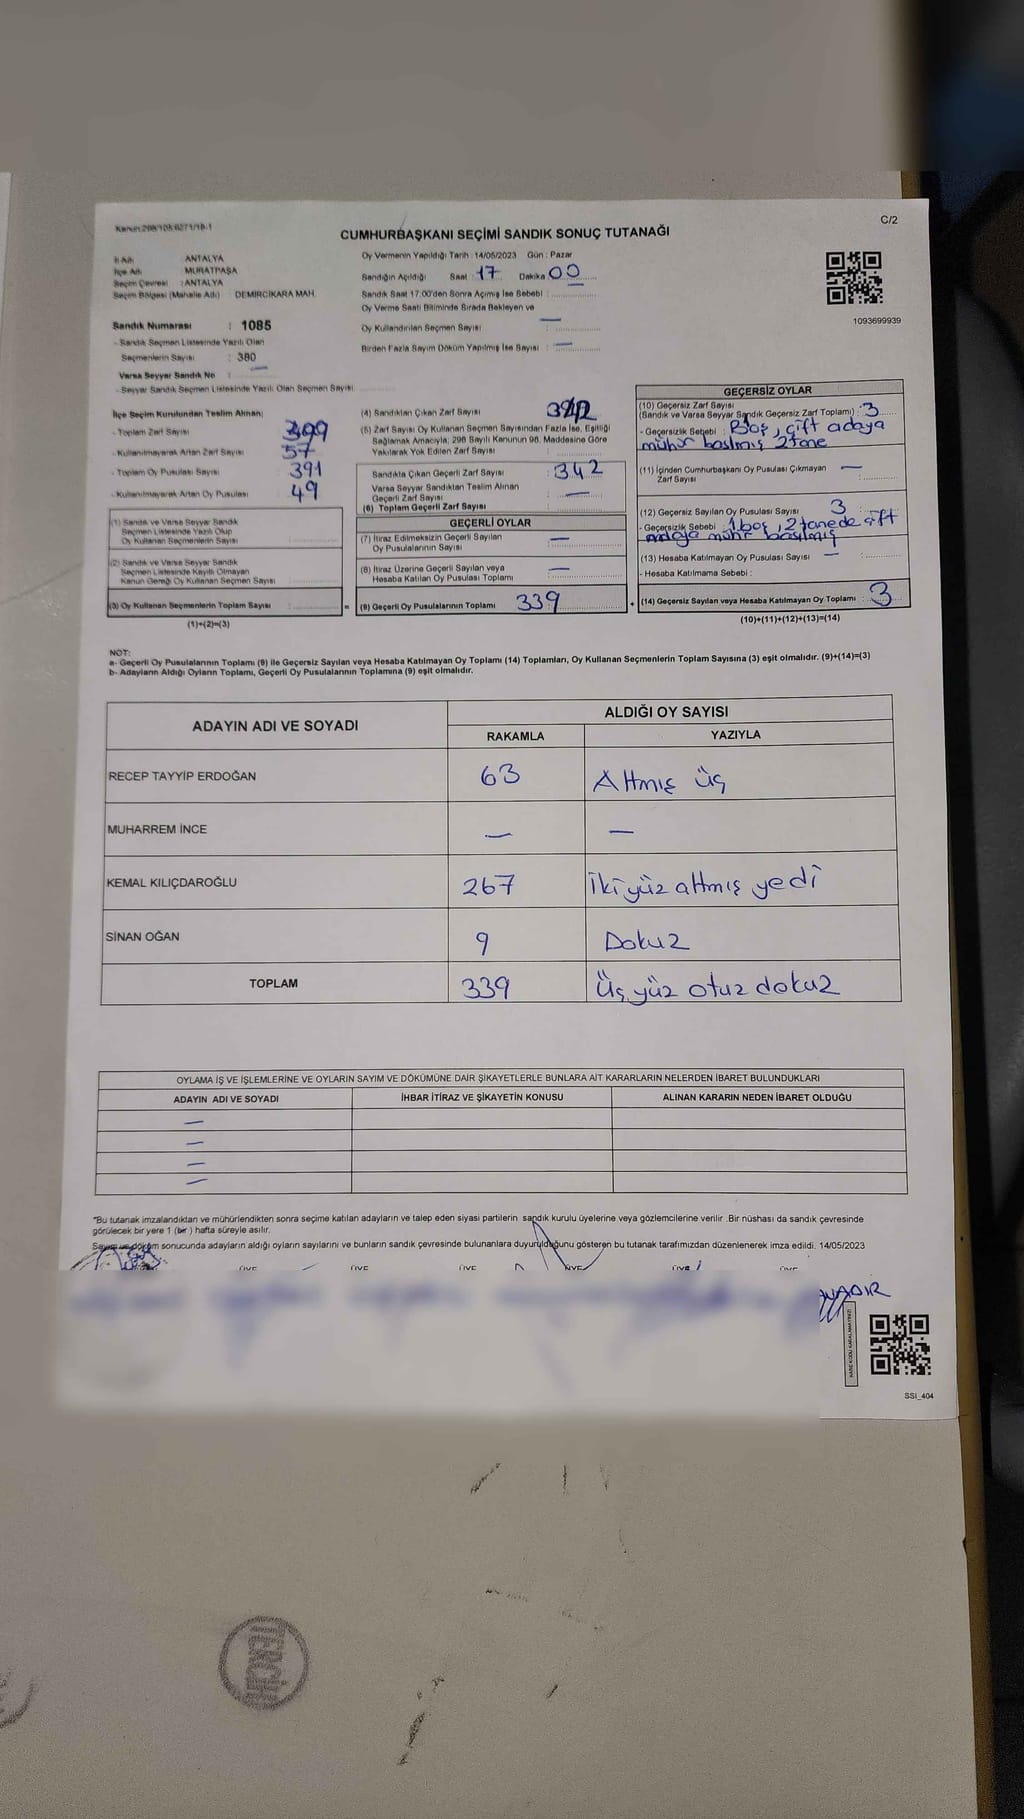 Kanun:298/108;6271/18-1
C/2
CUMHURBAŞKANI SEÇİMİ SANDIK SONUÇ TUTANAĞI
İl Adı : ANTALYA
İlçe Adı : MURATPAŞA
Seçim Çevresi : ANTALYA
Seçim Bölgesi (Mahalle Adı) : DEMİRCİKARA MAH.
Sandık Numarası : 1085
- Sandık Seçmen Listesinde Yazılı Olan
Seçmenlerin Sayısı : 380
Varsa Seyyar Sandık No : —
- Seyyar Sandık Seçmen Listesinde Yazılı Olan Seçmen Sayısı
Oy Vermenin Yapıldığı Tarih : 14/05/2023 Gün : Pazar
Sandığın Açıldığı Saat : 17 Dakika 00
Sandık Saat 17.00'den Sonra Açılmış İse Sebebi :
Oy Verme Saati Bitiminde Sırada Bekleyen ve
Oy Kullandırılan Seçmen Sayısı : —
Birden Fazla Sayım Döküm Yapılmış İse Sayısı : —
1093699939
İlçe Seçim Kurulundan Teslim Alınan;
- Toplam Zarf Sayısı 399
- Kullanılmayarak Artan Zarf Sayısı 57
- Toplam Oy Pusulası Sayısı 391
- Kullanılmayarak Artan Oy Pusulası 49
(1) Sandık ve Varsa Seyyar Sandık
Seçmen Listesinde Yazılı Olup
Oy Kullanan Seçmenlerin Sayısı :
(2) Sandık ve Varsa Seyyar Sandık
Seçmen Listesinde Kayıtlı Olmayan
Kanun Gereği Oy Kullanan Seçmen Sayısı :
(3) Oy Kullanan Seçmenlerin Toplam Sayısı : =
(1)+(2)=(3)
(4) Sandıktan Çıkan Zarf Sayısı : 342
(5) Zarf Sayısı Oy Kullanan Seçmen Sayısından Fazla İse, Eşitliği
Sağlamak Amacıyla, 298 Sayılı Kanunun 98. Maddesine Göre
Yakılarak Yok Edilen Zarf Sayısı :
Sandıkta Çıkan Geçerli Zarf Sayısı : 342
Varsa Seyyar Sandıktan Teslim Alınan
Geçerli Zarf Sayısı : —
(6) Toplam Geçerli Zarf Sayısı :
GEÇERLİ OYLAR
(7) İtiraz Edilmeksizin Geçerli Sayılan
Oy Pusulalarının Sayısı : —
(8) İtiraz Üzerine Geçerli Sayılan veya
Hesaba Katılan Oy Pusulası Toplamı : —
(9) Geçerli Oy Pusulalarının Toplamı 339 +
GEÇERSİZ OYLAR
(10) Geçersiz Zarf Sayısı
(Sandık ve Varsa Seyyar Sandık Geçersiz Zarf Toplamı) : 3
- Geçersizlik Sebebi : Boş, çift adaya
mühür basılmış 2 tane
(11) İçinden Cumhurbaşkanı Oy Pusulası Çıkmayan
Zarf Sayısı : —
(12) Geçersiz Sayılan Oy Pusulası Sayısı 3
- Geçersizlik Sebebi : 1 boş, 2 tanede çift
adaya mühür basılmış
(13) Hesaba Katılmayan Oy Pusulası Sayısı —
- Hesaba Katılmama Sebebi :
(14) Geçersiz Sayılan veya Hesaba Katılmayan Oy Toplamı : 3
(10)+(11)+(12)+(13)=(14)
NOT:
a- Geçerli Oy Pusulalarının Toplamı (9) ile Geçersiz Sayılan veya Hesaba Katılmayan Oy Toplamı (14) Toplamları, Oy Kullanan Seçmenlerin Toplam Sayısına (3) eşit olmalıdır. (9)+(14)=(3)
b- Adayların Aldığı Oyların Toplamı, Geçerli Oy Pusulalarının Toplamına (9) eşit olmalıdır.
ADAYIN ADI VE SOYADI
ALDIĞI OY SAYISI
RAKAMLA YAZIYLA
RECEP TAYYİP ERDOĞAN 63 Altmış üç
MUHARREM İNCE — —
KEMAL KILIÇDAROĞLU 267 İkiyüz altmış yedi
SİNAN OĞAN 9 Dokuz
TOPLAM 339 Üçyüz otuz dokuz
OYLAMA İŞ VE İŞLEMLERİNE VE OYLARIN SAYIM VE DÖKÜMÜNE DAİR ŞİKAYETLERLE BUNLARA AİT KARARLARIN NELERDEN İBARET BULUNDUKLARI
ADAYIN ADI VE SOYADI İHBAR İTİRAZ VE ŞİKAYETİN KONUSU ALINAN KARARIN NEDEN İBARET OLDUĞU
—
—
—
—
*Bu tutanak imzalandıktan ve mühürlendikten sonra seçime katılan adayların ve talep eden siyasi partilerin sandık kurulu üyelerine veya gözlemcilerine verilir .Bir nüshası da sandık çevresinde
görülecek bir yere 1 (bir ) hafta süreyle asılır.
Sayım ve döküm sonucunda adayların aldığı oyların sayılarını ve bunların sandık çevresinde bulunanlara duyurulduğunu gösteren bu tutanak tarafımızdan düzenlenerek imza edildi. 14/05/2023
ÜYE ÜYE ÜYE ÜYE ÜYE ÜYE
SSI_404
TERCİH